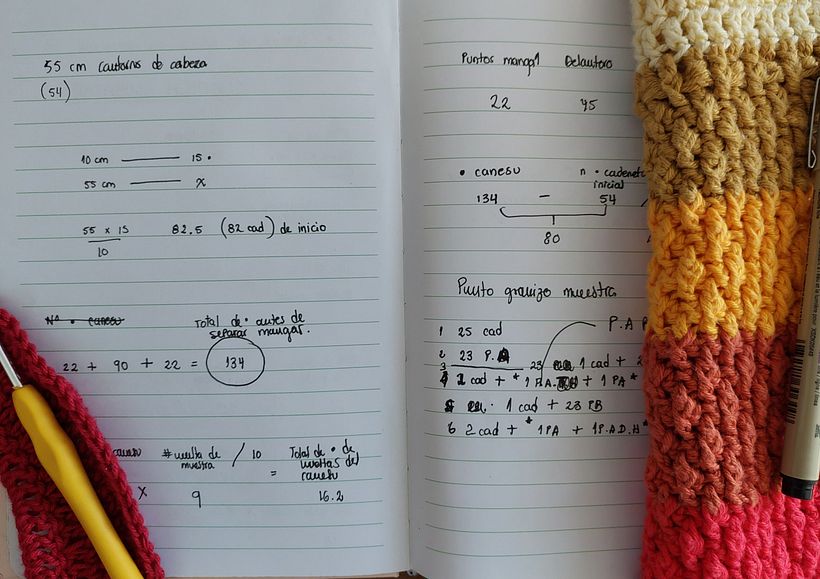 55 cm contorno de cabeza
(54)
10 cm —— 15 •
55 cm —— x
55 x 15
10
82.5 (82 cad) de inicio
Nº • canesu
Total de • antes de
separar mangas.
22 + 90 + 22 = 134
canesu # vuelta de muestra / 10 = Total de • de vueltas del canesu
X 9 16.2
Puntos manga Delantero
22 45
• canesu n • cadenet
inicial
134 — 54
80
Punto granizo muestra
1 25 cad
2 23 P.A
P.A P
3 23 1 cad + 2
4 2 cad + * 1 P.A. + 1 PA *
5 1 cad + 23 PB
6 2 cad + * 1PA + 1P.A.D.H *